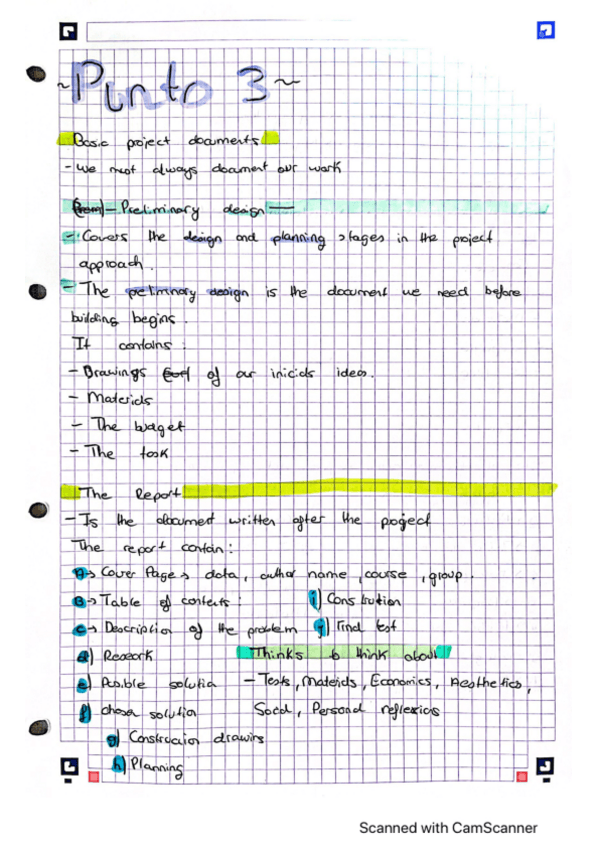 ~Punto 3~
Basic project documents
- We must always document our work
- Preliminary design
- Covers the design and planning stages in the project
approach.
- The preliminary design is the document we need before
building begins.
It contains:
- Drawings of our inicials ideas.
- Materials
- The budget
- The task
The Report
- Is the document written after the project
The report contain:
A→ Cover Page→ data, author name, course, group.
B→ Table of contents:
C→ Description of the problem
d) Research
e) Posible solution
f) chosen solution
g) Construcion drawins
h) Planning
i) Constrution
j) Final test
Thinks to think about
- Tests, Materials, Economics, Aesthetics,
Social, Personal reflexios
Scanned with CamScanner